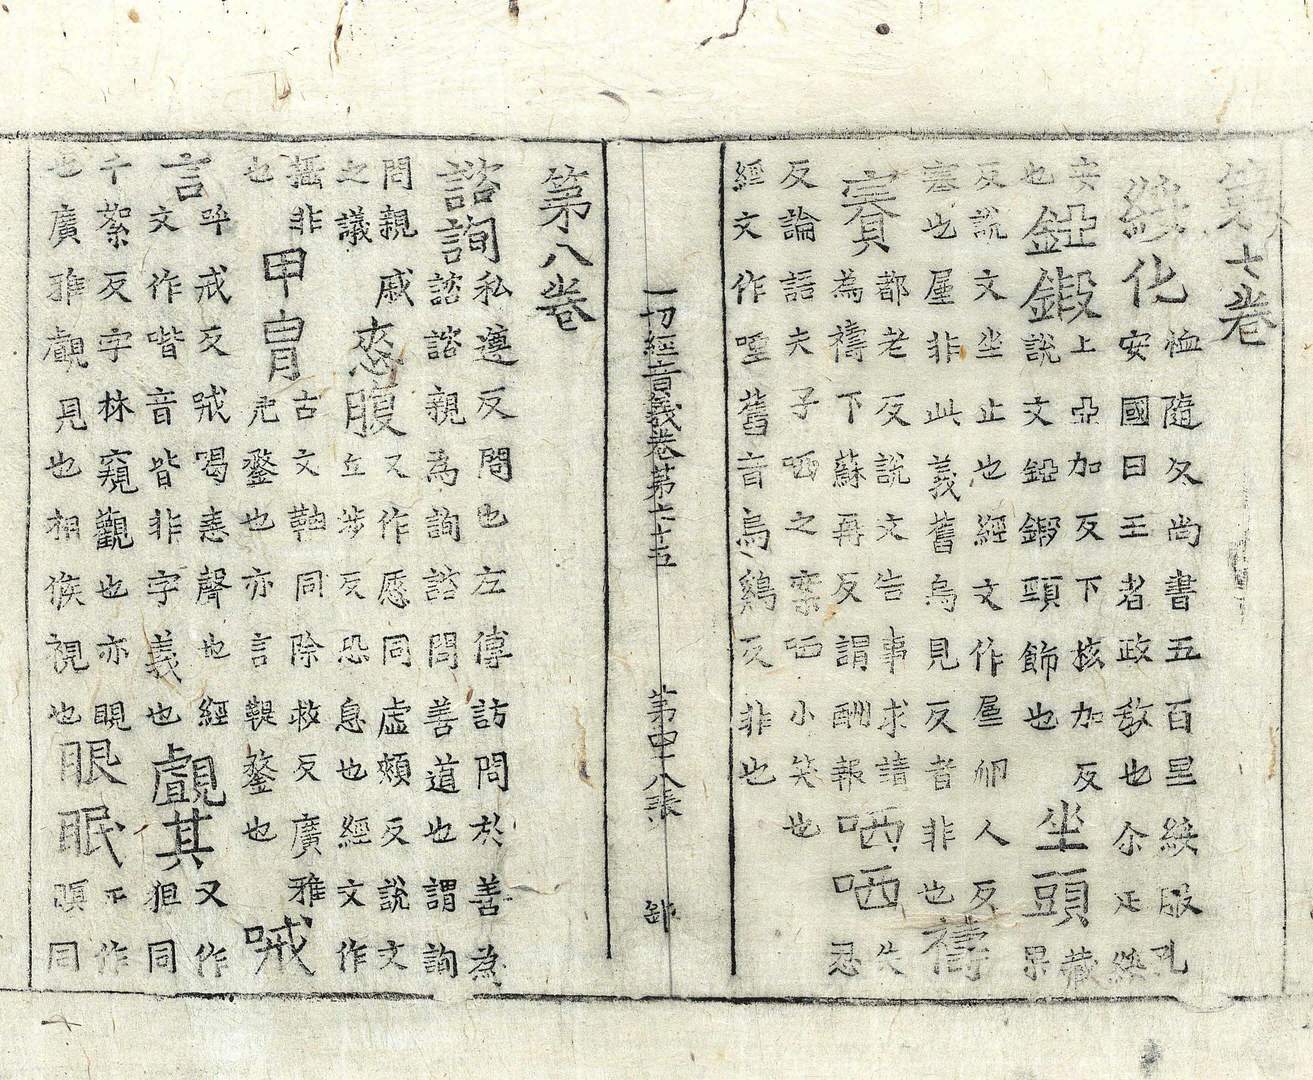 第七卷
綏化恤隨反尚書五百里綏服孔
安國曰王者政教也尒疋綏
安
也錏鍜上亞加反下核加反
說文錏鍜頸飾也坐頭藏
果
反說文坐止也經文作垔卯人反
塞也垔非此義舊烏見反者非也禱
賽都老反說文告事求請
為禱下蘇再反謂酬報哂哂失
忍
反論語夫子哂之案哂小笑也
經文作㖶舊音烏鷄反非也
一切經音義卷第七十五 第四十八張
第八卷
諮詢私遵反問也左傳訪問於善為
諮諮親為詢諮問善道也謂詢
問親戚
之議恣腹又作愿同虛頰反說文
丘涉反恐息也經文作
攝非
也甲胄古文䩜同除救反廣雅
兠鍪也亦言鞮鍪也㖑
言呼戒反㖑喝恚聲也經
文作喈音皆非字義也覰其又作
狙同
千絮反字林窺觀也亦覗
也廣雅覰見也相候視也眼眠正作
瞑同